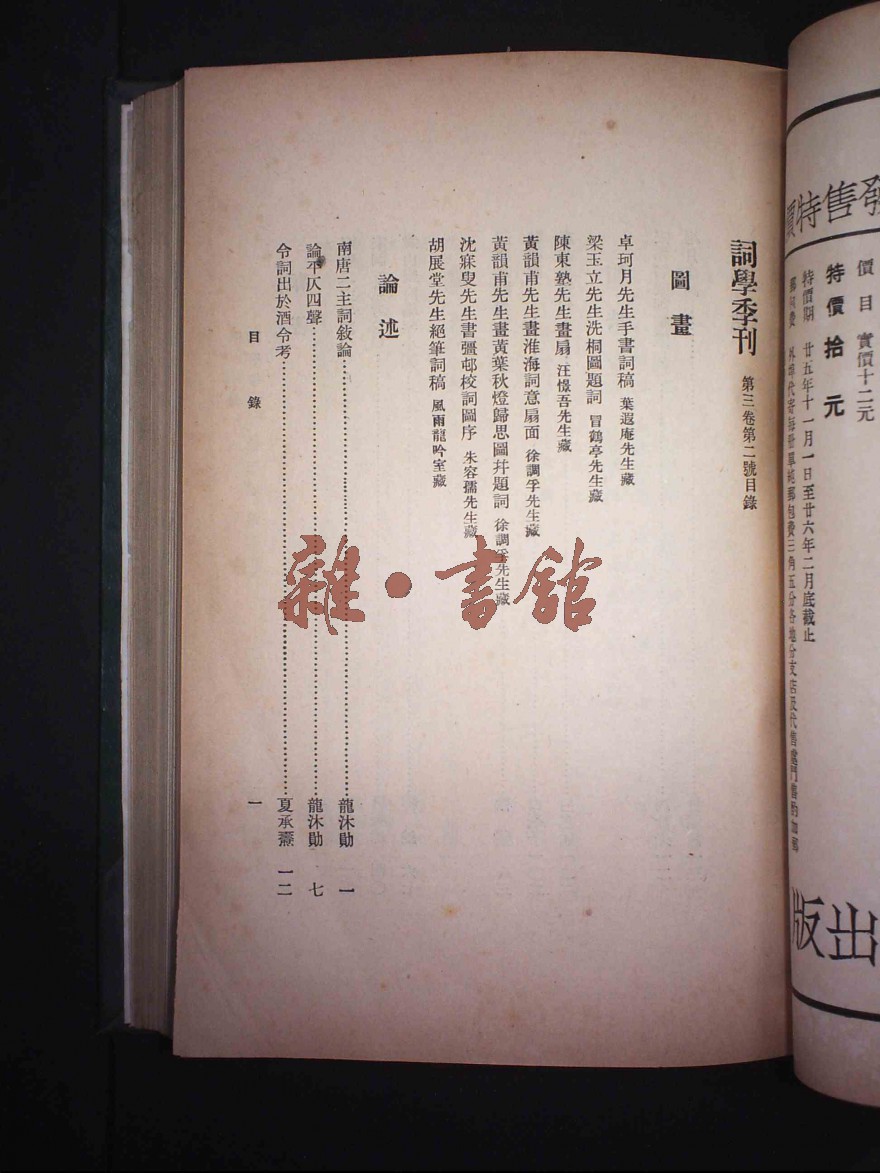 詞學季刊 第三卷第二號目錄
圖畫
卓珂月先生手書詞稿 葉遐庵先生藏
梁玉立先生洗桐圖題詞 冒鶴亭先生藏
陳東塾先生畫扇 汪憬吾先生藏
黃韻甫先生畫淮海詞意扇面 徐調孚先生藏
黃韻甫先生畫黃葉秋燈歸思圖幷題詞 徐調孚先生藏
沈寐叟先生書彊邨校詞圖序 朱容孺先生藏
胡展堂先生絕筆詞稿 風雨龍吟室藏
論述
南唐二主詞敍論 龍沐勛 一
論平仄四聲 龍沐勛 七
令詞出於酒令考 夏承燾 一二
目錄 一
發售特價
價目 實價十二元
特價拾元
特價期 廿五年十一月一日至廿六年二月底截止
出版
雜·書館